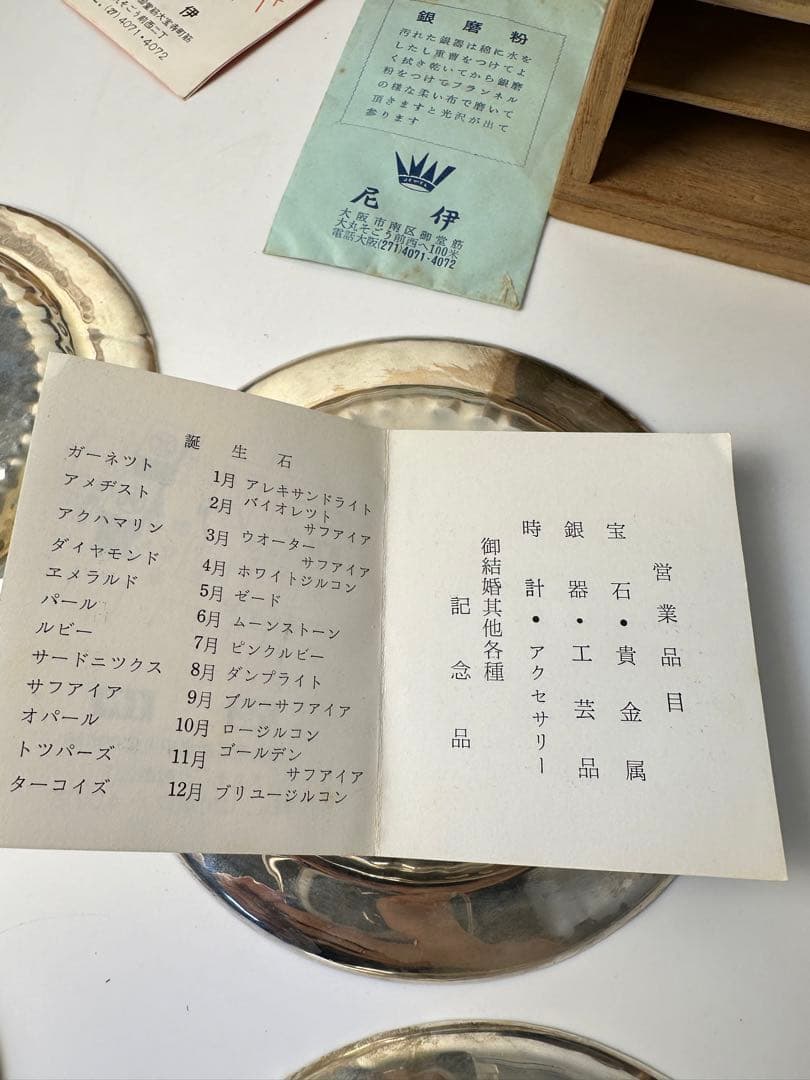 伊
(271)4071・4072
銀磨粉
汚れた銀器は綿に水を
したし重曹をつけてよ
く拭き乾いてから銀磨
粉をつけてフランネル
の様な柔い布で磨いて
頂きますと光沢が出て
参ります
JEWEL
尼伊
大阪市南区御堂筋
大丸そごう前西へ100米
電話大阪(271)4071-4072
誕生石
ガーネツト 1月 アレキサンドライト
アメヂスト 2月 バイオレツト
サフアイア
アクハマリン 3月 ウオーター
サフアイア
ダイヤモンド 4月 ホワイトジルコン
ヱメラルド 5月 ゼード
パール 6月 ムーンストーン
ルビー 7月 ピンクルビー
サードニツクス 8月 ダンブライト
サフアイア 9月 ブルーサフアイア
オパール 10月 ロージルコン
トツパーズ 11月 ゴールデン
サフアイア
ターコイズ 12月 ブリユージルコン
営業品目
宝石・貴金属
銀器・工芸品
時計・アクセサリー
御結婚其他各種
記念品